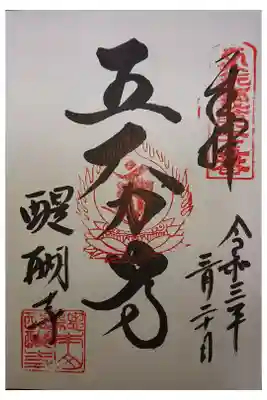 奉拝
令和三年
三月二十日
五大力尊
醍醐寺